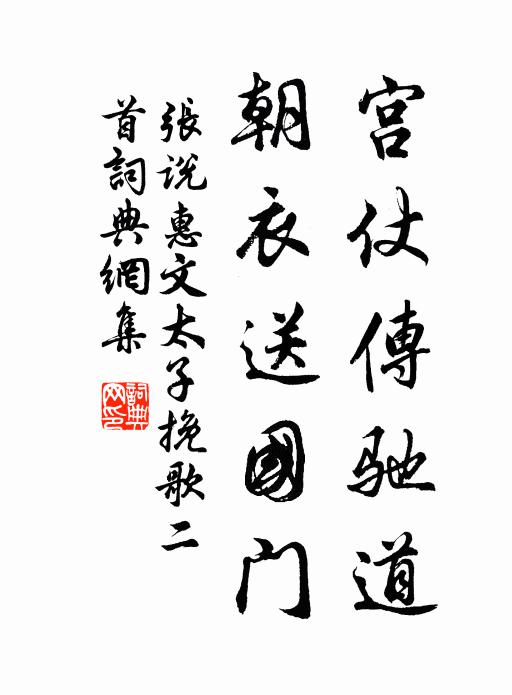 宫仗傳馳道
朝衣送國門
張说惠文太子挽歌二
首詞典網集
詞典
网印